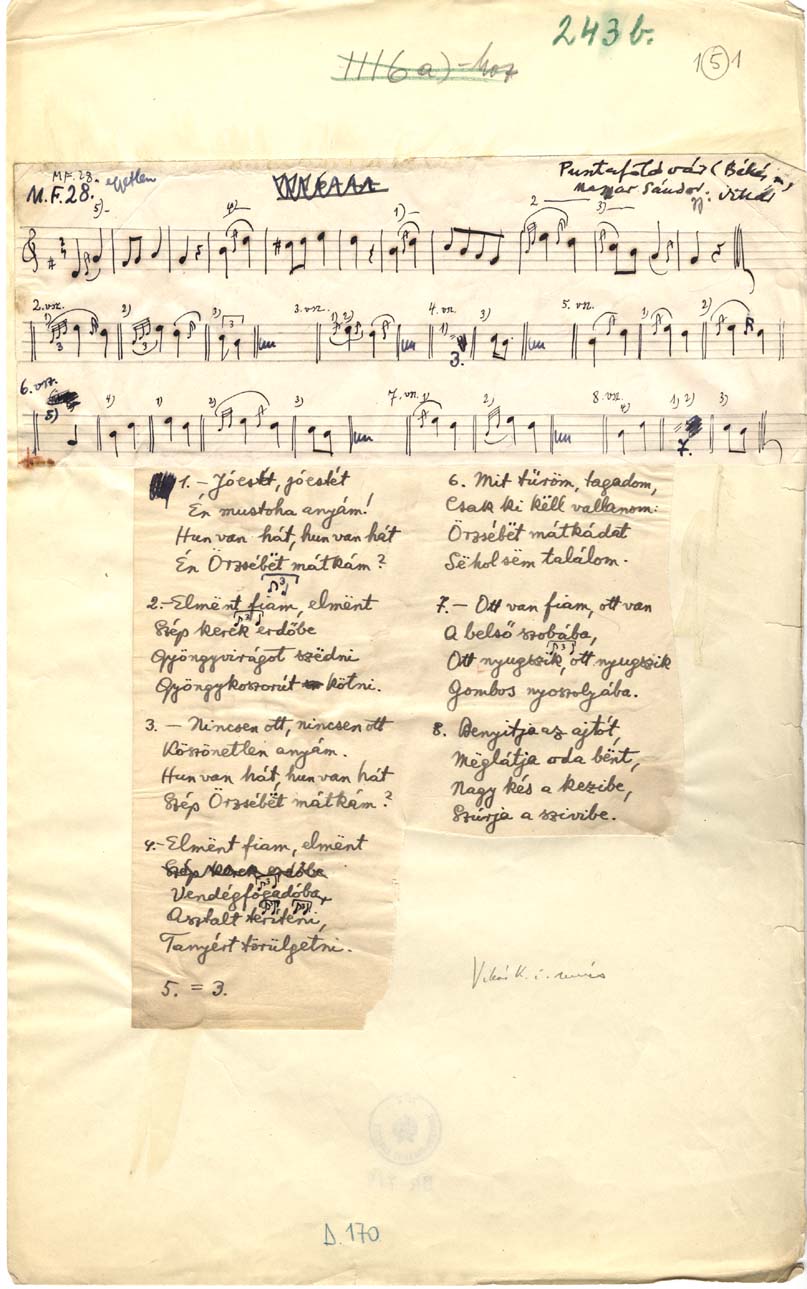 243b.
III(6a)-hoz
1(5)1
M.F.28.
M.F.28. egyetlen
Pusztaföldvár (Békés m)
Magyar Sándor; Vikár
5) 4) 1) 2 3)
2. vsz. 1) 2) 3) 3. vsz. 1) 2) 4. vsz. 1) 3) 5. vsz. 1) 2)
3 3 3 3.
6. vsz.
5) 4) 1) 2) 3) 7. vsz. 1) 2) 8. vsz. 4) 1) 2) 3)
7.
1. – Jóestét, jóestét
Én mustoha anyám!
Hun van hát, hun van hát
Én Örzsébët mátkám?
2. – Elmënt fiam, elmënt
Szép kerek erdőbe
Gyöngyvirágot szëdni
Gyöngykoszorút kötni.
3. – Nincsen ott, nincsen ott
Köszönetlen anyám.
Hun van hát, hun van hát
Szép Örzsébët mátkám?
4. – Elmënt fiam, elmënt
Szép kerek erdőbe
Vendégfogadóba,
Asztalt teríteni,
Tanyért törülgetni.
5. = 3.
6. Mit tűröm, tagadom,
Csak ki këll vallanom:
Örzsébët mátkádat
Sëhol sëm találom.
7. – Ott van fiam, ott van
A belső szobába,
Ott nyugszik, ott nyugszik
Gombos nyoszolyába.
8. Benyitja az ajtót,
Mëglátja oda bënt,
Nagy kés a kezibe,
Szúrja a szivibe.
D.170